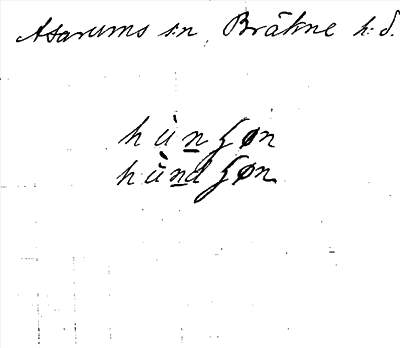 Asarums sn, Bräkne h.d.
hùn̲ʒøn
hùn̲dʒøn